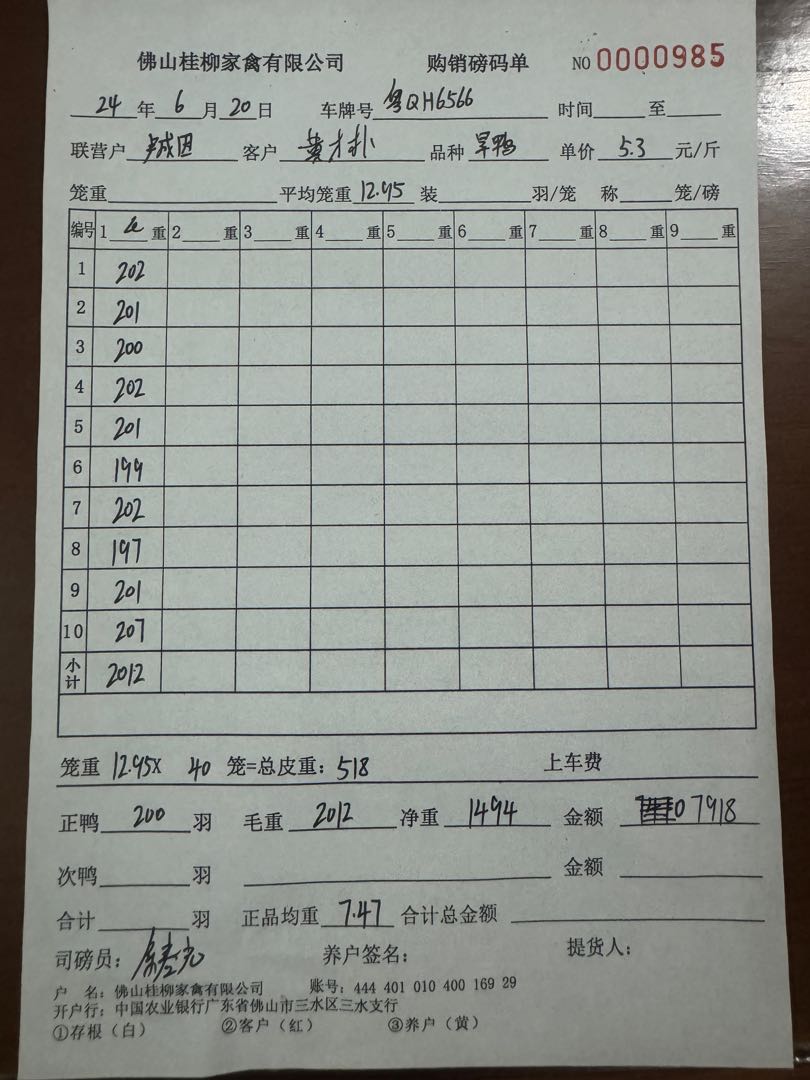 佛山桂柳家禽有限公司 购销磅码单 NO 0000985
24 年 6 月 20 日 车牌号 粤QH6566 时间 至
联营户 客户 黄才扑 品种 旱鸭 单价 5.3 元/斤
笼重 平均笼重 12.95 装 羽/笼 称 笼/磅
编号 1 母 重 2 重 3 重 4 重 5 重 6 重 7 重 8 重 9 重
1 202
2 201
3 200
4 202
5 201
6 199
7 202
8 197
9 201
10 207
小计 2012
笼重 12.95X 40 笼=总皮重: 518 上车费
正鸭 200 羽 毛重 2012 净重 1494 金额 7918
次鸭 羽 金额
合计 羽 正品均重 7.47 合计总金额
司磅员: 养户签名: 提货人:
户 名: 佛山桂柳家禽有限公司 账号: 444 401 010 400 169 29
开户行: 中国农业银行广东省佛山市三水区三水支行
①存根(白) ②客户(红) ③养户(黄)